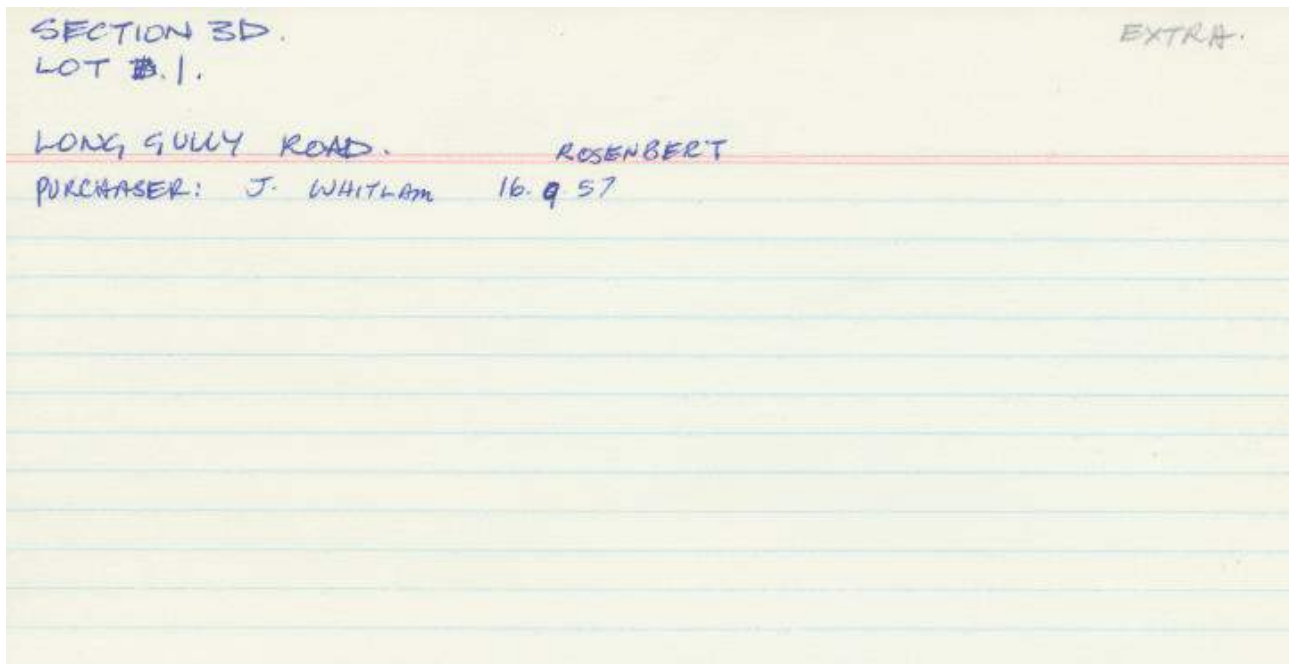 SECTION 3D.
EXTRA.
LOT 1.
LONG GULLY ROAD. ROSENBERT
PURCHASER: J. WHITLAM 16.9 57